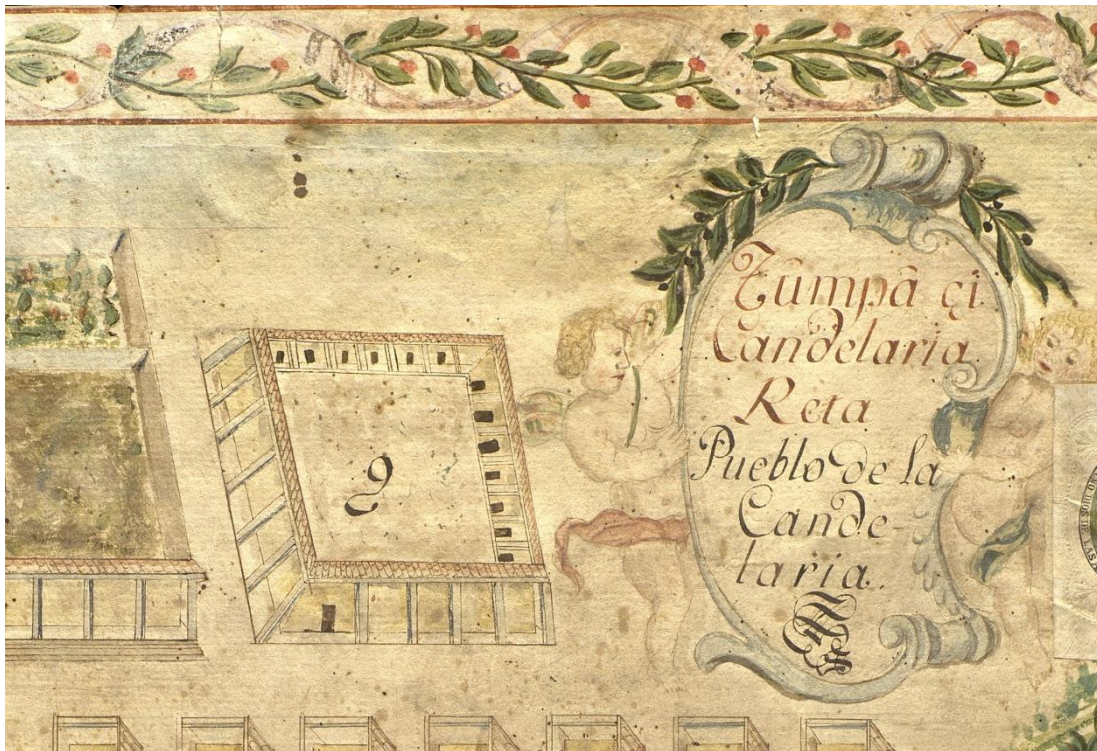 9
Tûmpâ çi
Candelaria
Reta
Pueblo de la
Cande-
laria.